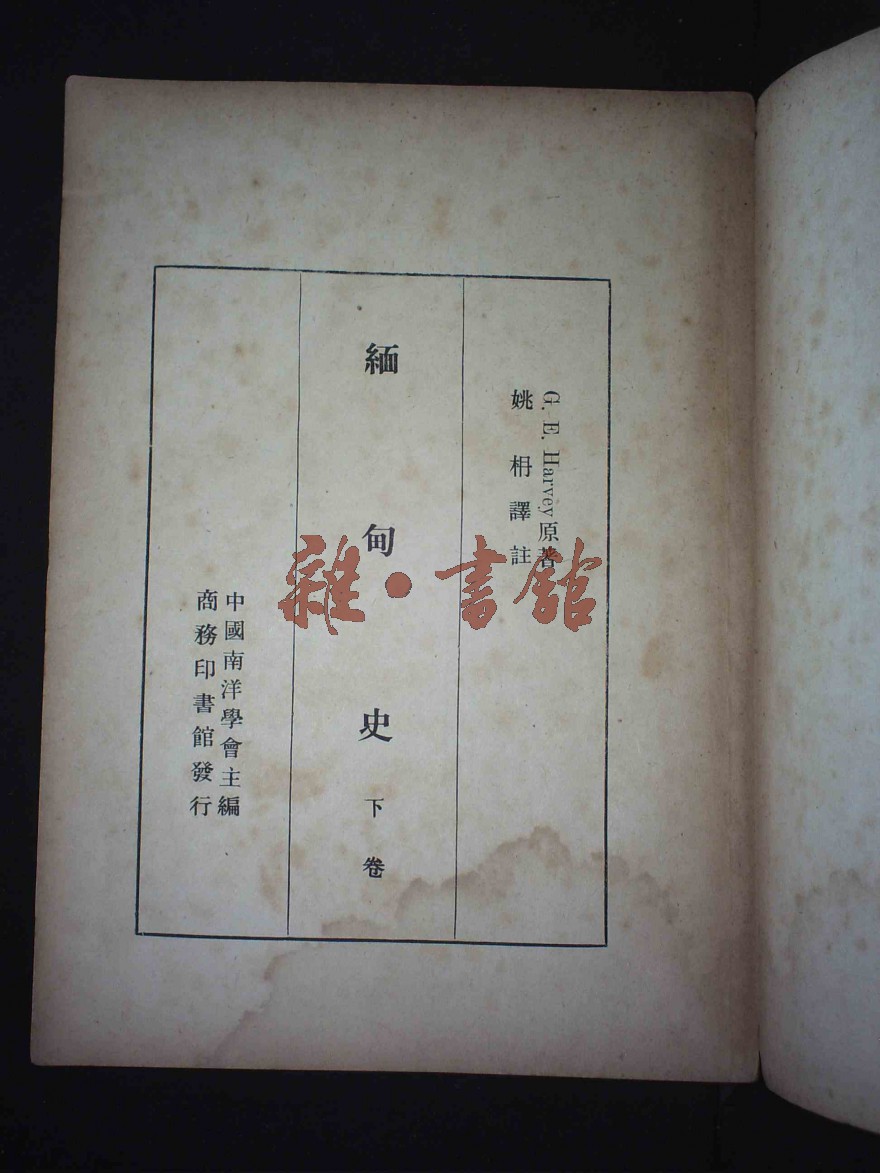 G. E. Harvey原著
姚枬譯註
緬甸史下卷
中國南洋學會主編
商務印書館發行
雜·書館